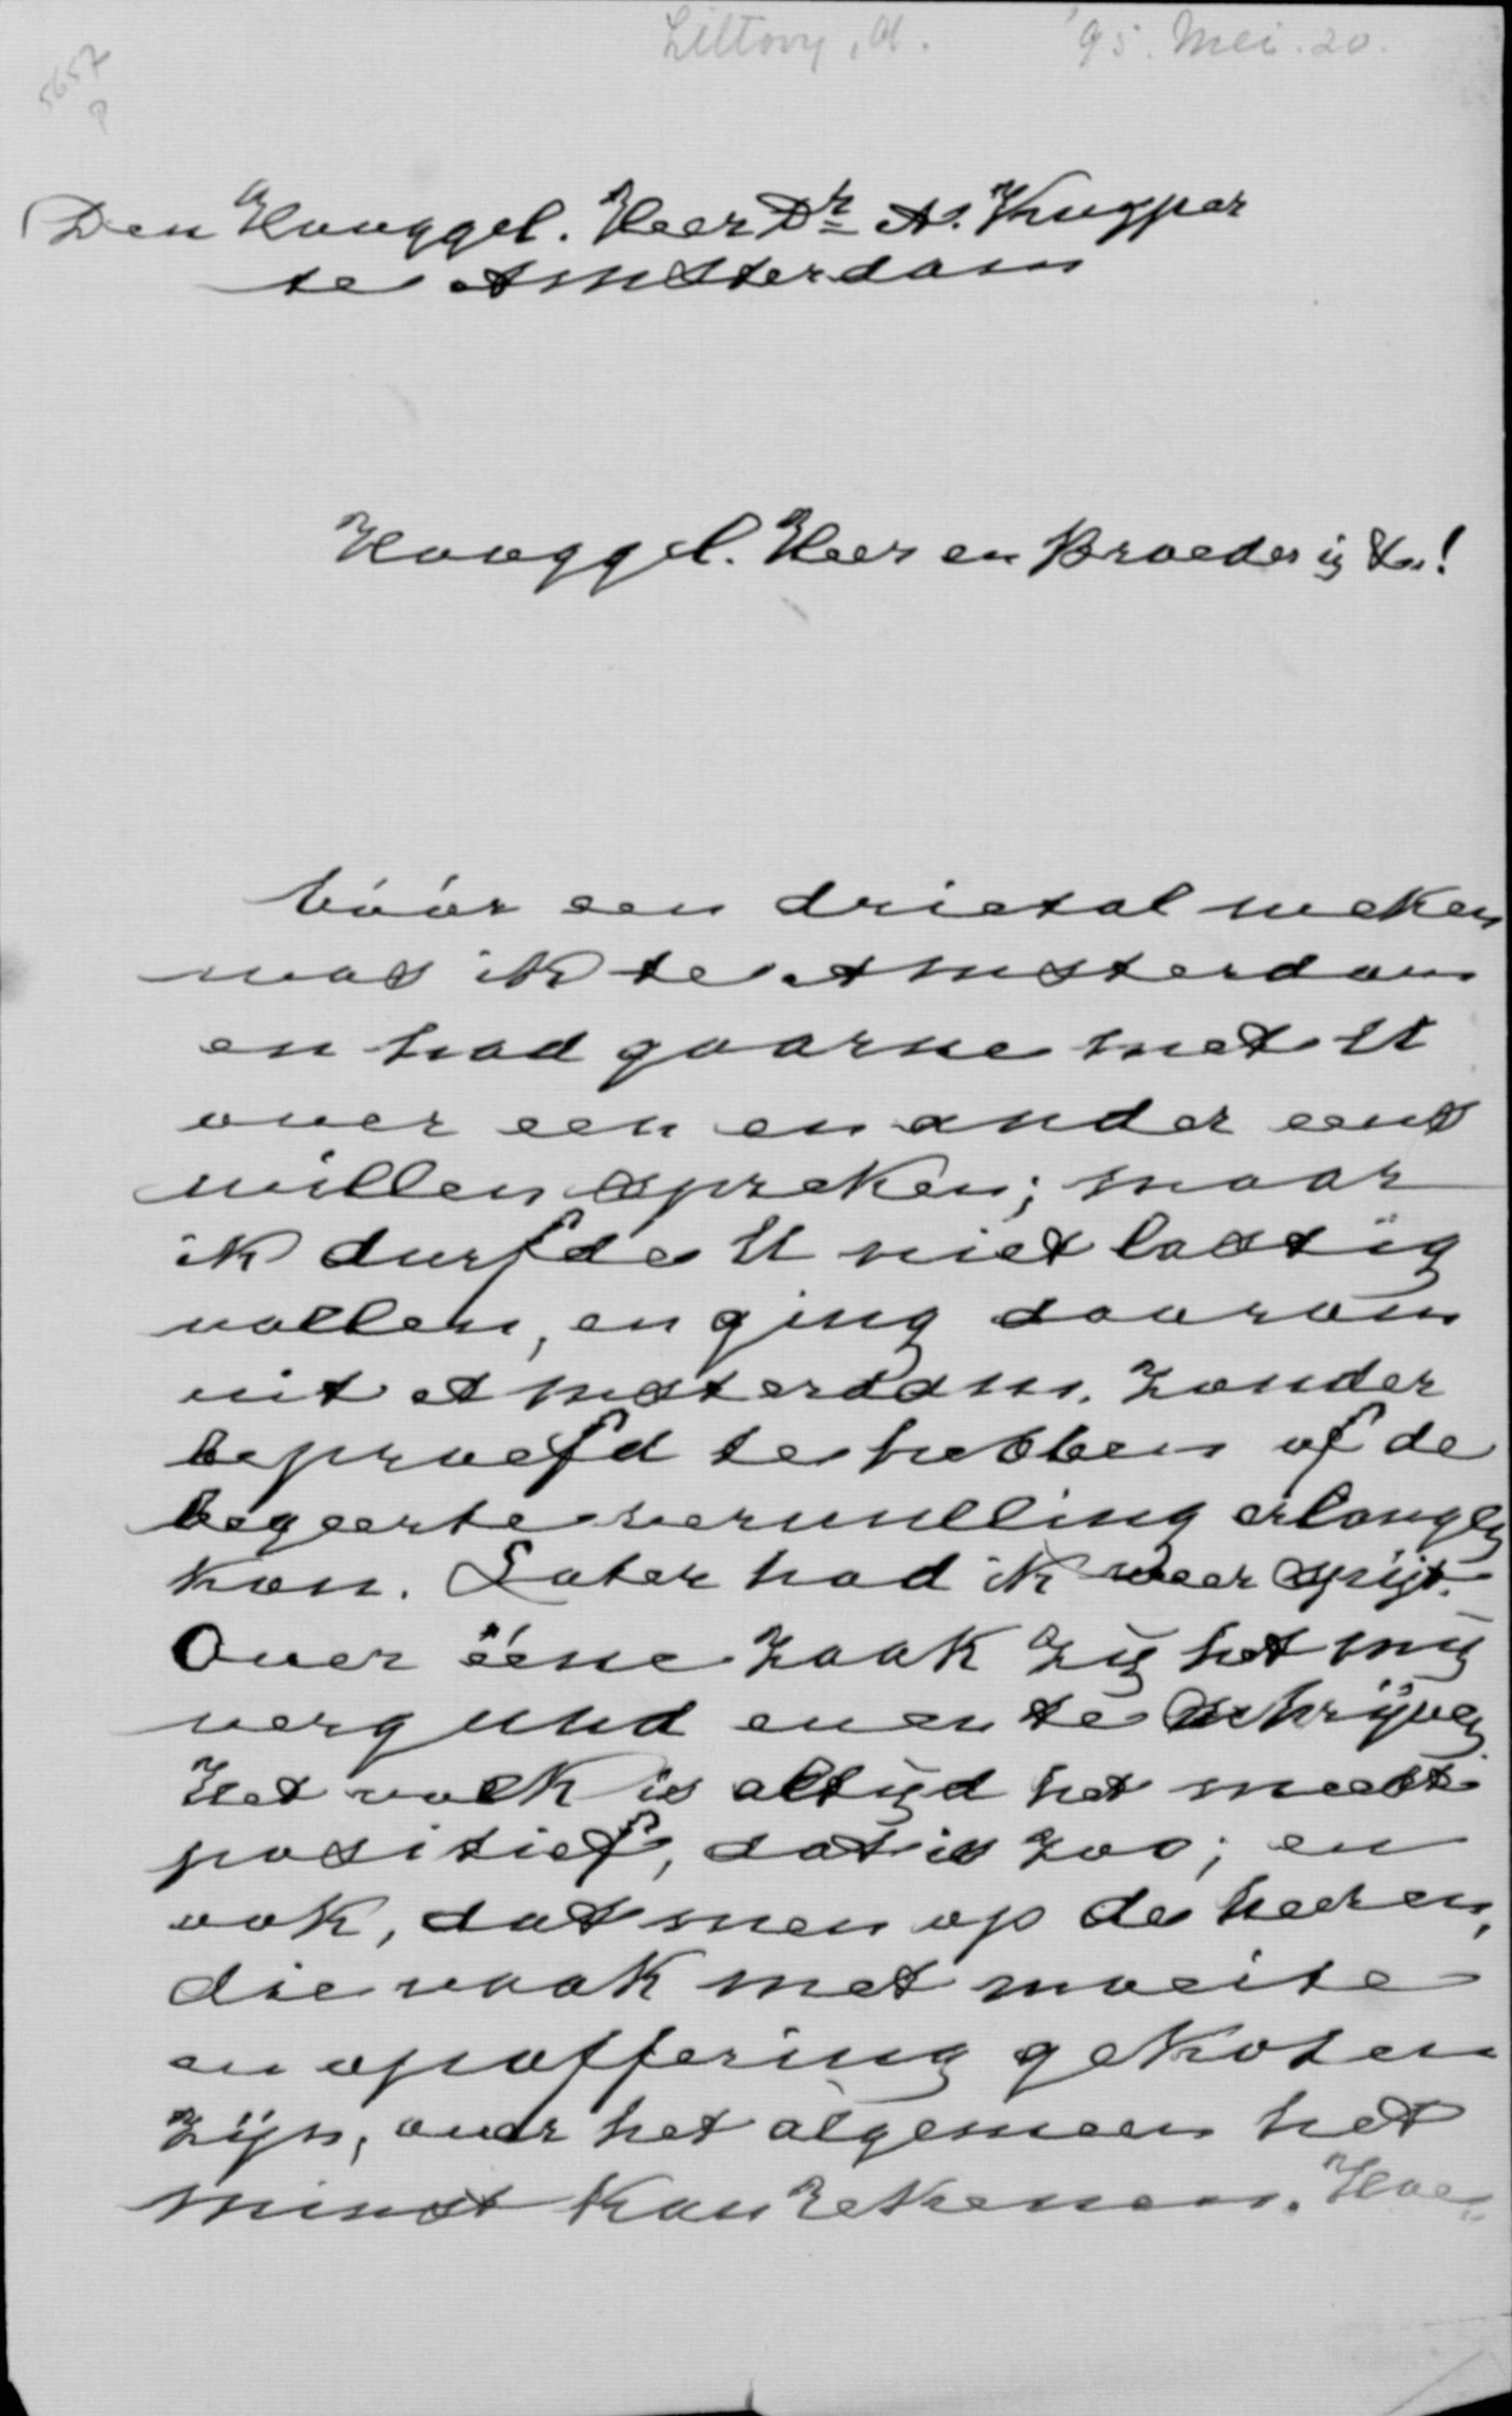 Littooy, A. '95. Mei. 20.
5657
Den Hooggel. Heer Dr A. Kuyper
te Amsterdam
Hooggel. Heer en Broeder in Xo!
Vóór een drietal weken
was ik te Amsterdam
en had gaarne met U
over een en ander eens
willen spreken; maar
ik durfde U niet lastig
vallen, en ging daarom
uit Amsterdam, zonder
beproefd te hebben of de
begeerte vervulling erlangen
kon. Later had ik weer spijt.
Over ééne zaak zij het mij
vergund even te schrijven.
Het volk is altijd het meest
positief, dat is zoo; en
ook, dat men op de heeren,
die vaak met moeite
en opoffering gekozen
zijn, over het algemeen het
minst kan rekenen. Hoe